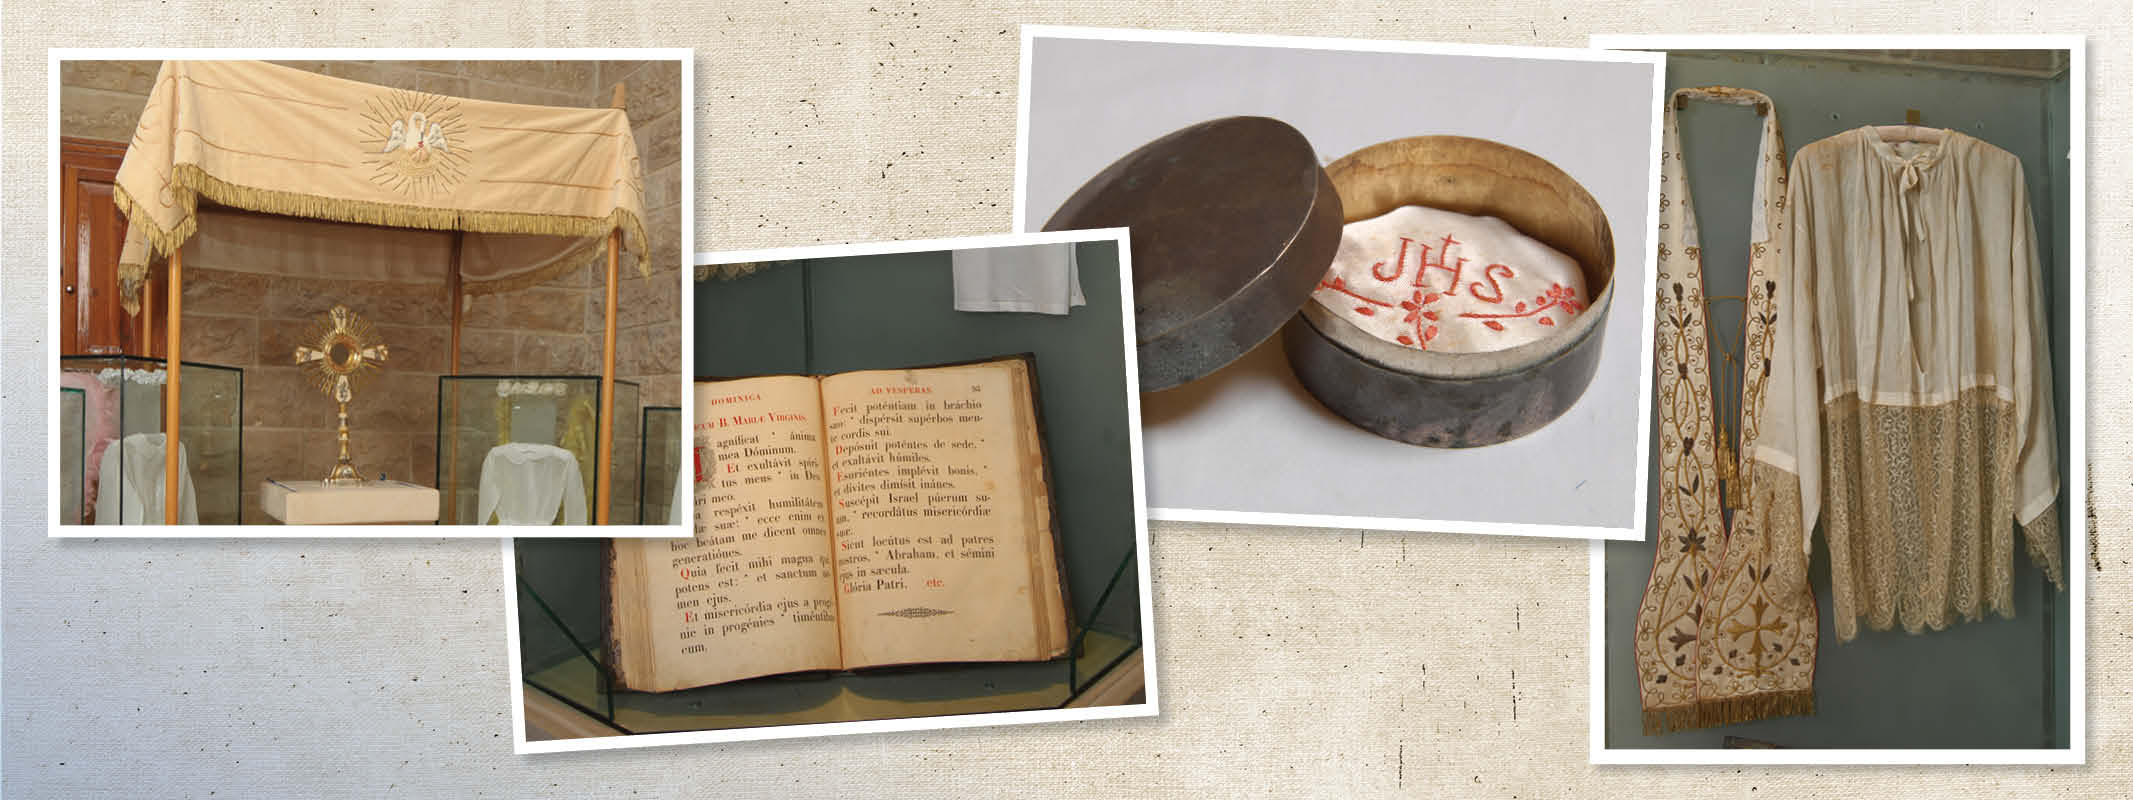 DOMINICA
B. MARIÆ VIRGINIS.
agníficat * ánima
mea Dóminum.
Et exultávit spíri-
tus meus * in Deo
meo.
respéxit humilitátem
suæ: * ecce enim ex
hoc beátam me dicent omnes
generatiónes.
Quia fecit mihi magna qui
potens est: * et sanctum no-
men ejus.
Et misericórdia ejus a progé-
nie in progénies * timéntibus
eum.
AD VESPERAS.
Fecit poténtiam in bráchio
suo: * dispérsit supérbos men-
te cordis sui.
Depósuit poténtes de sede, *
et exaltávit húmiles.
Esuriéntes implévit bonis, *
et dívites dimísit inánes.
Suscépit Israel púerum su-
um, * recordátus misericórdiæ
suæ.
Sicut locútus est ad patres
nostros, * Abraham, et sémini
ejus in sǽcula.
Glória Patri, etc.
JHS